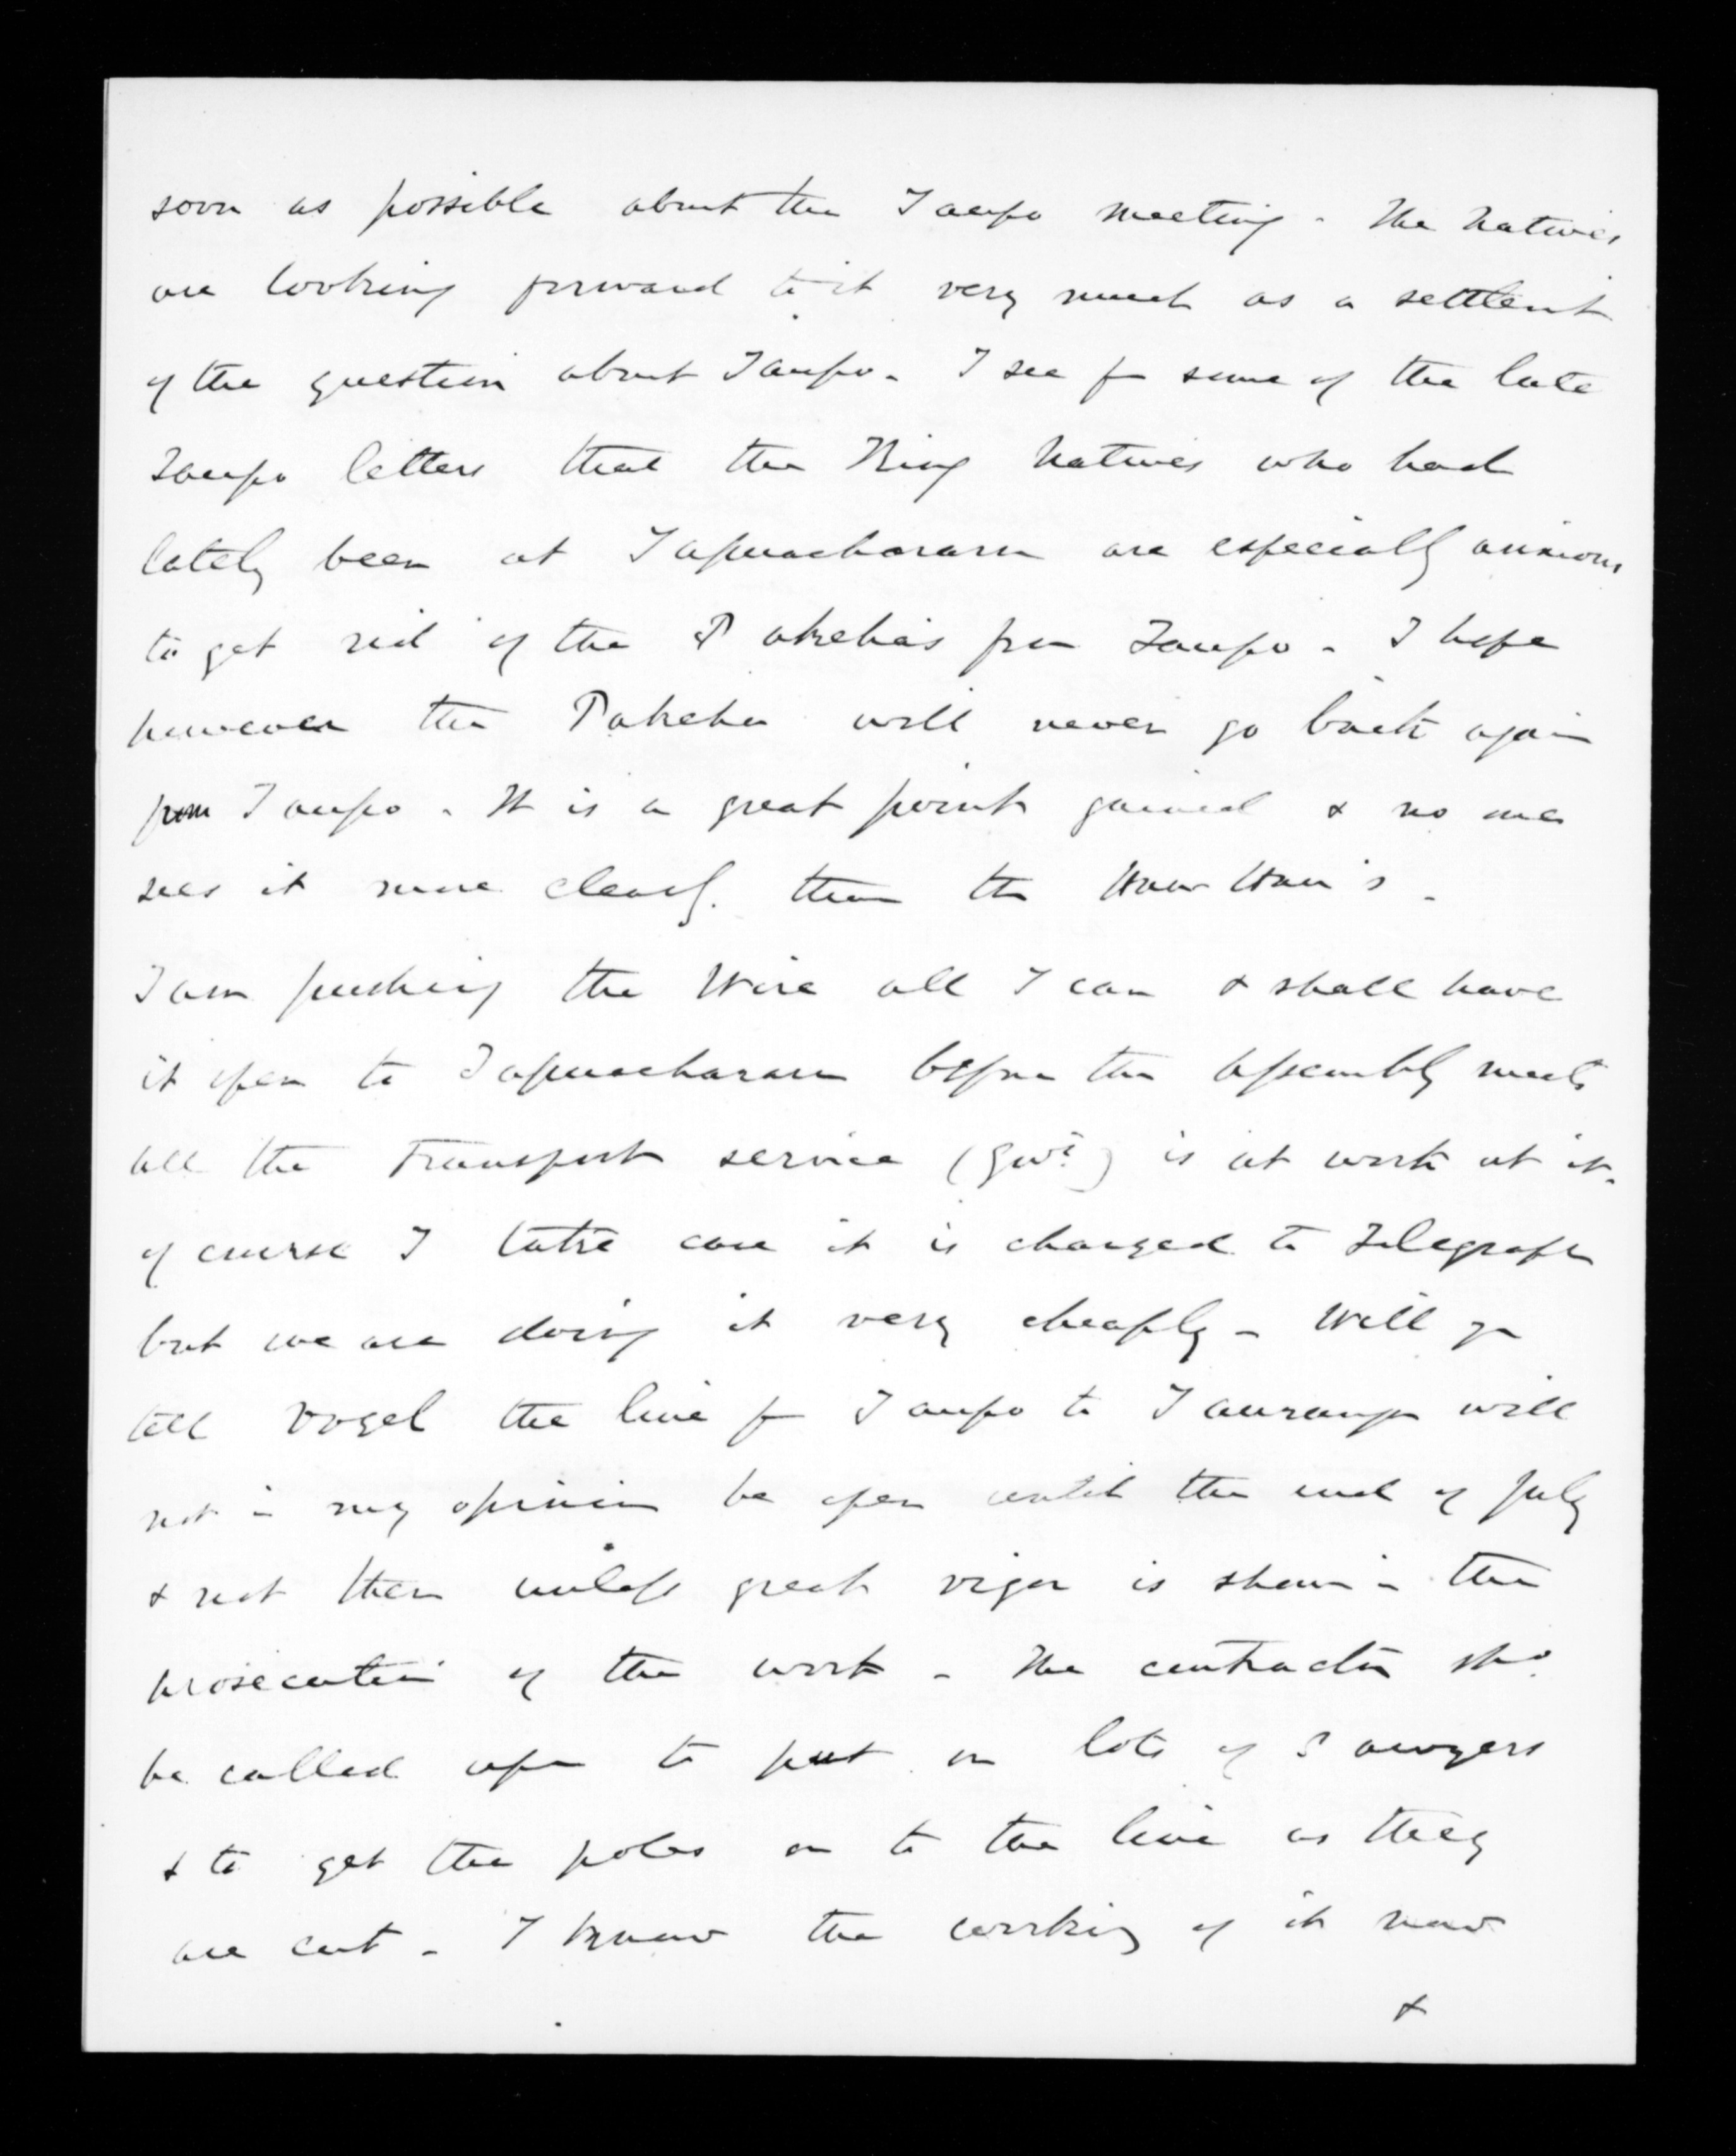 soon as possible about the Taupo meeting - The Natives
are looking forward to it very much as a settlent
of the question about Taupo - I see fm some of the late
Taupo letters that the King Natives who had
lately been at Tapuaeharuru are especially anxious
to get rid of the Pakeha's from Taupo - I hope
however the Pakeha will never go back again
from Taupo - It is a great point gained & no one
sees it more clearly than the Hau Hau's -
I am pushing the Wire all I can & shall have
it open to Tapuaeharuru before the Assembly meets
all the Transport service (Govt) is at work at it.
of course I take care it is charged to Telegraph
but we are doing it very cheaply - Will you
tell Vogel the line fm Taupo to Tauranga will
not in my opinion be open until the end of July
& not then unless great vigor is shown in the
prosecution of the work - The contractor shd
be called upon to put on lots of Sawyers
& to get the poles on to the line as they
are cut - I know the working of it now
&